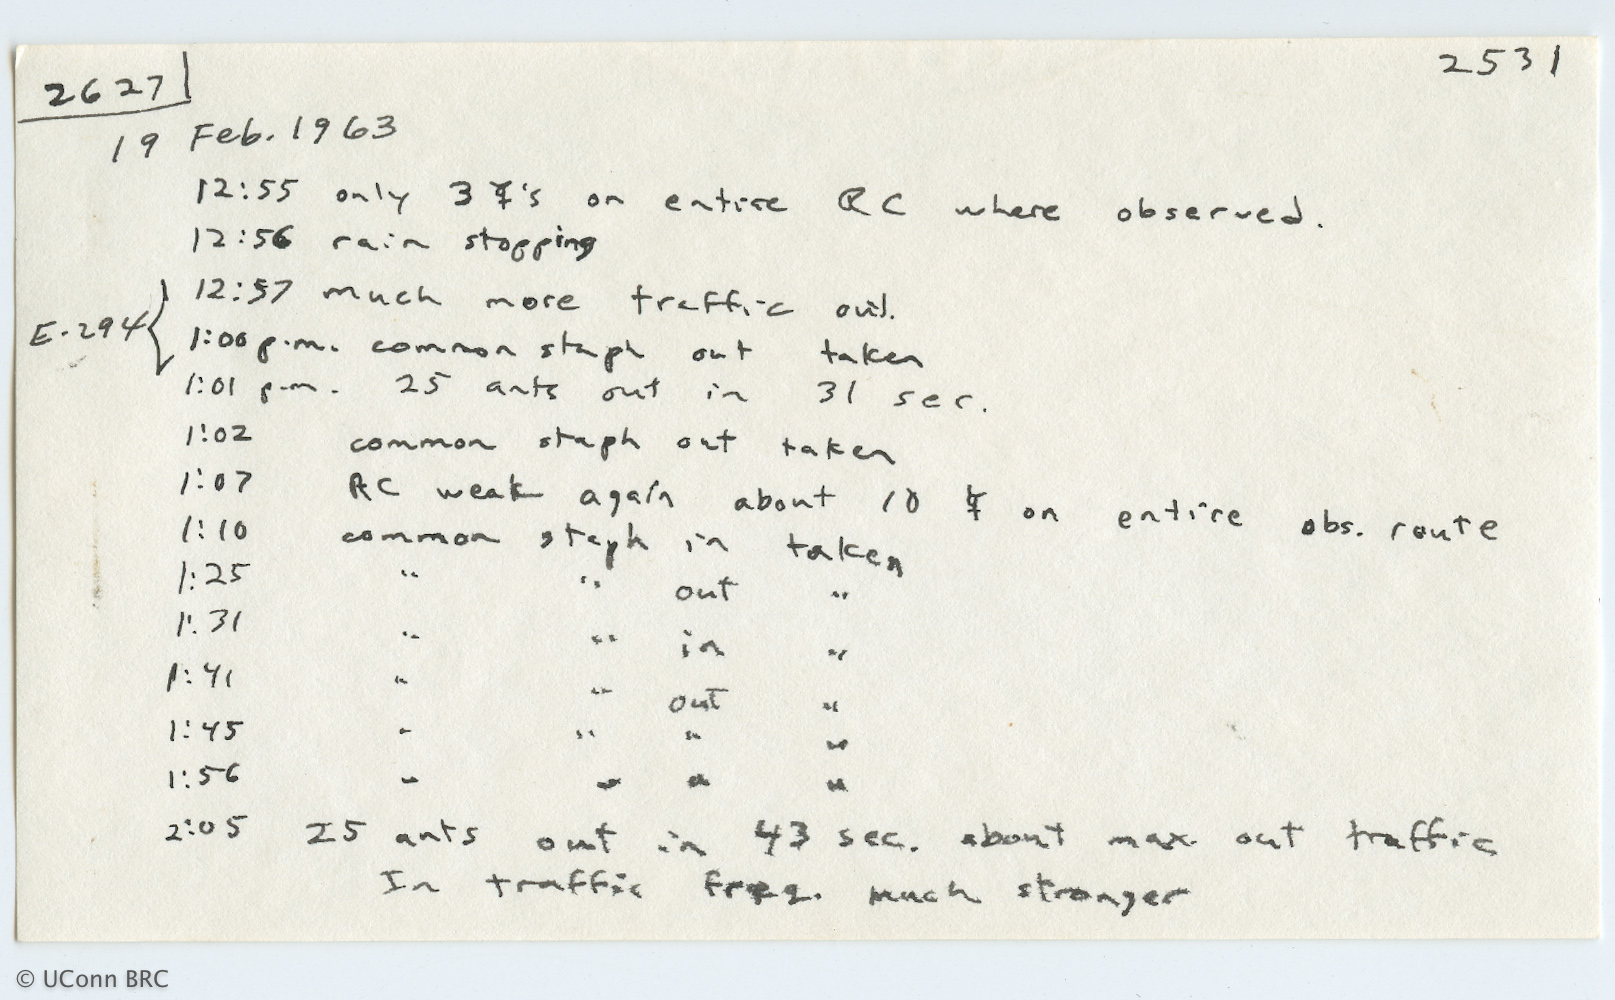 2627
2531
19 Feb. 1963
12:55 only 3 ☿'s on entire RC where observed.
12:56 rain stopping
12:57 much more traffic out.
E-294 { 1:00 p.m. common staph out taken
1:01 p.m. 25 ants out in 31 sec.
1:02 common staph out taken
1:07 RC weak again about 10 ☿ on entire obs. route
1:10 common staph in taken
1:25 " " out "
1:31 " " in "
1:41 " " out "
1:45 " " " "
1:56 " " " "
2:05 25 ants out in 43 sec. about max. out traffic
In traffic freq. much stronger
© UConn BRC